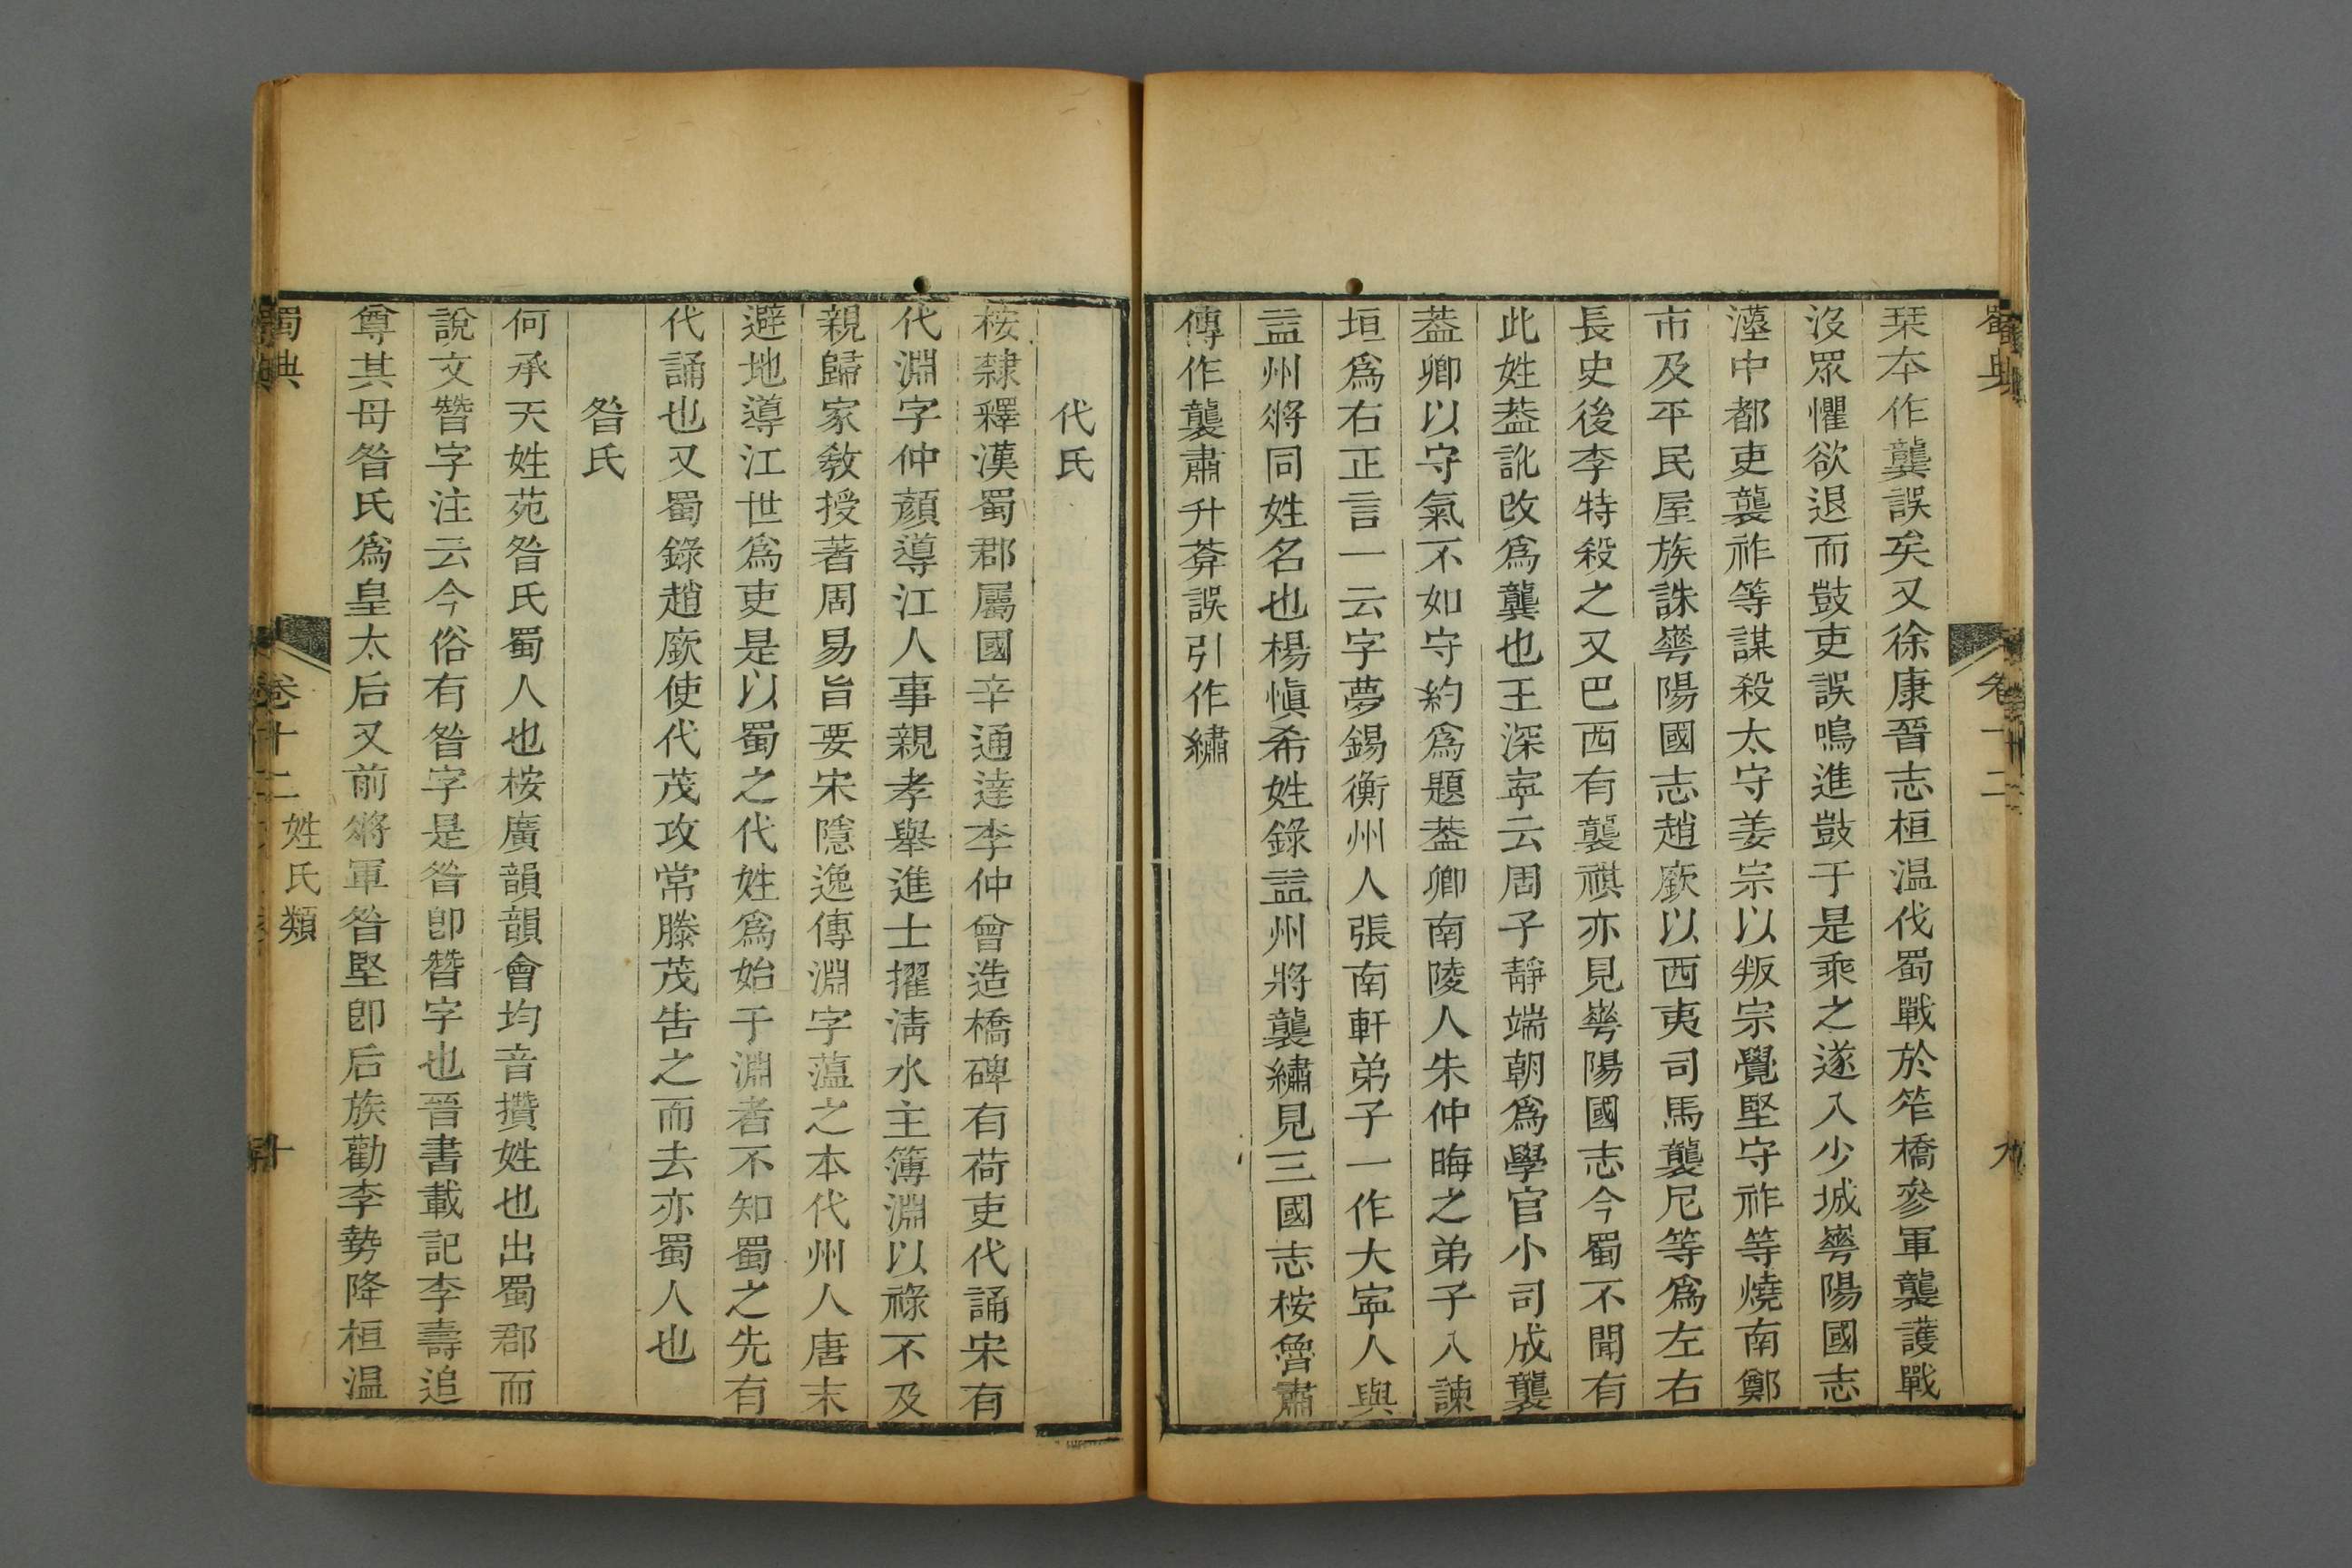 蜀典
卷十二
九
琹本作龔誤矣又徐康晉志桓温伐蜀戰於笮橋參軍襲護戰
沒眾懼欲退而鼓吏誤鳴進鼓于是乘之遂入少城蕚陽國志
漢中都吏襲祚等謀殺太守姜宗以叛宗覺堅守祚等燒南鄭
市及平民屋族誅蕚陽國志趙廞以西夷司馬襲尼等為左右
長史後李特殺之又巴西有襲祺亦見蕚陽國志今蜀不聞有
此姓葢訛改為龔也王深寧云周子靜端朝為學官小司成襲
葢卿以守氣不如守約為題葢卿南陵人朱仲晦之弟子入諫
垣為右正言一云字夢錫衡州人張南軒弟子一作大寧人與
益州將同姓名也楊慎希姓錄益州將襲繡見三國志桉魯肅
傳作襲肅升菴誤引作繡
代氏
桉隸釋漢蜀郡屬國辛通達李仲曾造橋碑有荷吏代誦宋有
代淵字仲顏導江人事親孝舉進士擢淸水主簿淵以祿不及
親歸家敎授著周易旨要宋隱逸傳淵字蕰之本代州人唐末
避地導江世為吏是以蜀之代姓為始于淵者不知蜀之先有
代誦也又蜀錄趙廞使代茂攻常滕茂告之而去亦蜀人也
昝氏
何承天姓苑昝氏蜀人也桉廣韻韻會均音攢姓也出蜀郡而
說文朁字注云今俗有昝字是昝卽朁字也晉書載記李壽追
尊其母昝氏為皇太后又前將軍昝堅卽后族勸李勢降桓温
蜀典
卷十二
姓氏類
十